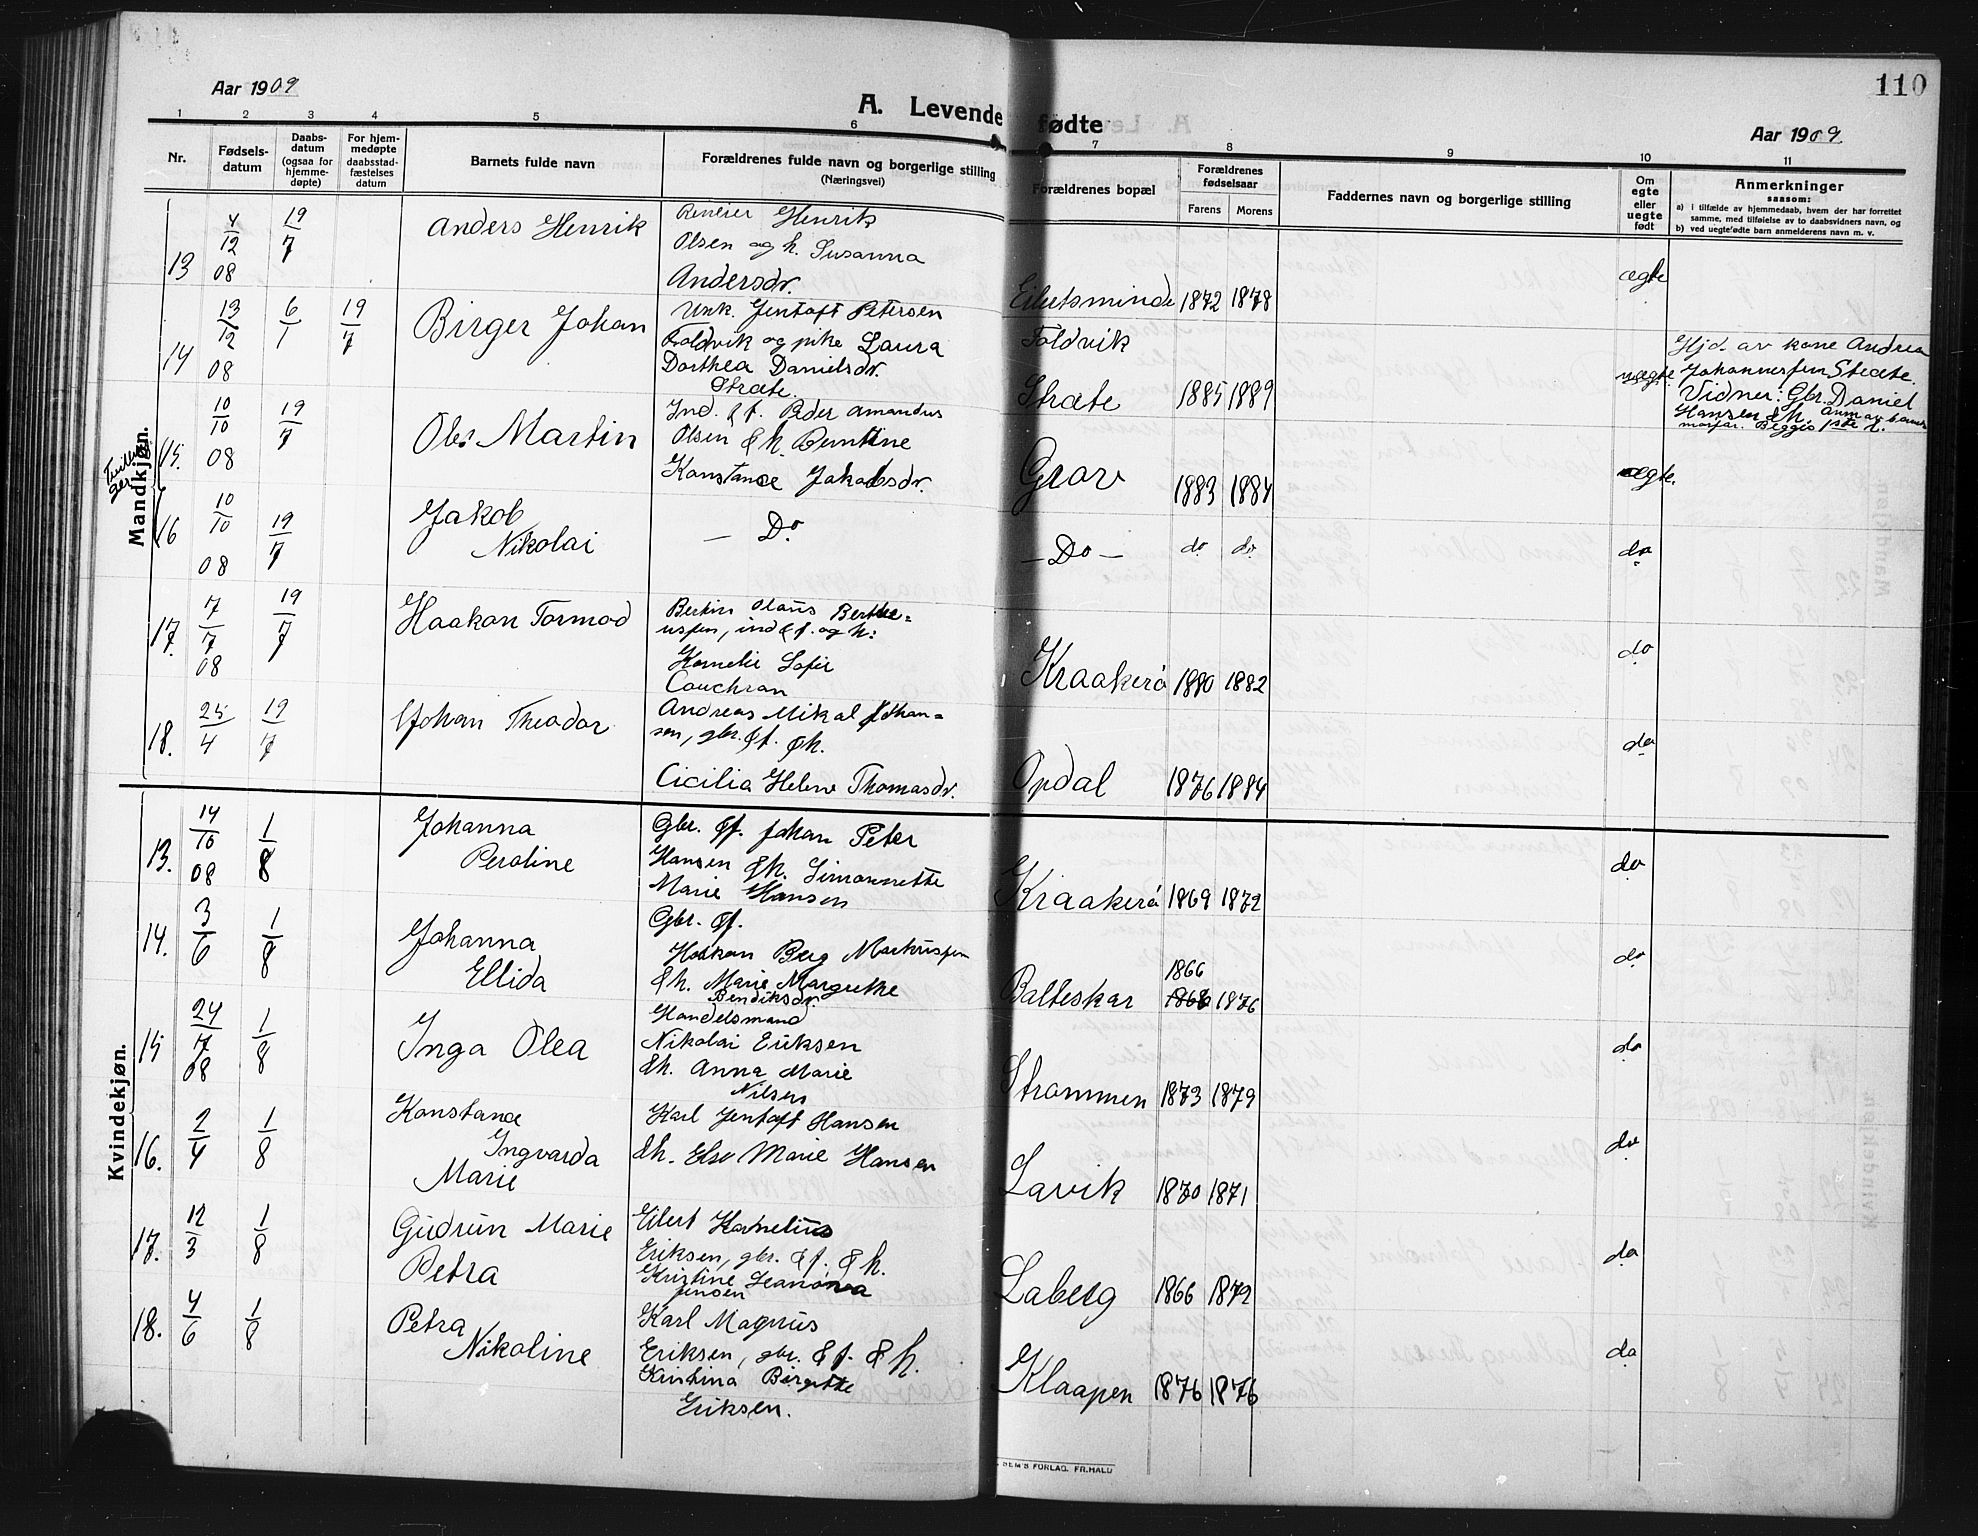 Aar 1909
A. Levende fødte
Aar 1909
110
1 2 3 4 5 6 7 8 9 10 11
Nr.
Fødsels-
datum
Daabs-
datum
(ogsaa for
hjemme-
døpte)
For hjem-
medøpte
daabsstad-
fæstelses
datum
Barnets fulde navn
Forældrenes fulde navn og borgerlige stilling
(Næringsvei)
Forældrenes bopæl
Forældrenes
fødselsaar
Farens Morens
Faddernes navn og borgerlige stilling
Om
egte
eller
uegte
født
Anmerkninger
saasom:
a) i tilfælde av hjemmedaab, hvem der har forrettet
samme, med tilføielse av to daabsvidners navn, og
b) ved uegtefødte barn anmelderens navn m. v.
Mandkjøn.
13 4/12 08 19/7 Anders Henrik
Henrik
Olsen og h. Susanna
Andersdr.
Eilertsminde 1872 1878 ægte
14 13/12 08 6/1 19/7 Birger Johan
Unk. Jentoft Petersen
Foldvik og pike Laura
Dorthea Danielsdr.
Stræte.
Foldvik
Stræte 1885 1889 uægte.
Hjd. av kone Andrea
Johannesfen Stræte.
Vidner: Gbr. Daniel
Hansen & h. Anm av barnets
morfar. Begges 1ste
15. 10/10 08 19/7 Ole Martin
Ind. & f. Peder Amandus
Olsen & h. Berntine
Konstance Jakobsdr.
Grov 1883 1884 ægte.
16 10/10 08 19/7 Jakob
Nikolai
— Do
— Do — do do do
17. 7/7 08 19/7 Haakon Tormod
Bertin Olaus Berthe=
usfen, ind & f. og h:
Kornelie Sofie
Couchran
Kraakerø 1880 1882 do
18. 25/4 19/7 Johan Theodor
Andreas Mikal Johan=
sen, gbr. & f. & h.
Cicilia Helene Thomasdr.
Opdal 1876 1884 do
Kvindekjøn.
13. 14/10 08 1/8 Johanna
Peroline
Gbr. & f. Johan Peter
Hansen & h. Simonnette
Marie Hansen
Kraakerø 1869 1872 do
14. 3/6 1/8 Johanna
Ellida
Gbr. & f.
Haakon Berg Markusfen
& h. Marie Margrethe
Bendiksdr.
Balteskar 1866 1868 1876 do
15 24/7 08 1/8 Inga Olea
Handelsmand
Nikolai Eriksen
& h. Anna Marie
Nilsen
Strammen 1873 1879 do
16. 2/4 1/8 Konstance
Ingvarda
Marie
Karl Jentoft Hansen
& h. Else Marie Hansen
Lavik 1870 1871 do
17. 12/3 1/8 Gudrun Marie
Petra
Eilert Kornelius
Eriksen, gbr. & f. & h.
Kristine Jensen
Laberg 1866 1872 do
18. 4/6 1/8 Petra
Nikoline
Karl Magnus
Eriksen, gbr. & f. & h.
Kristina Birgitte
Eriksen.
Klaapen 1876 1876 do
SEM'S FORLAG. FR.HALD